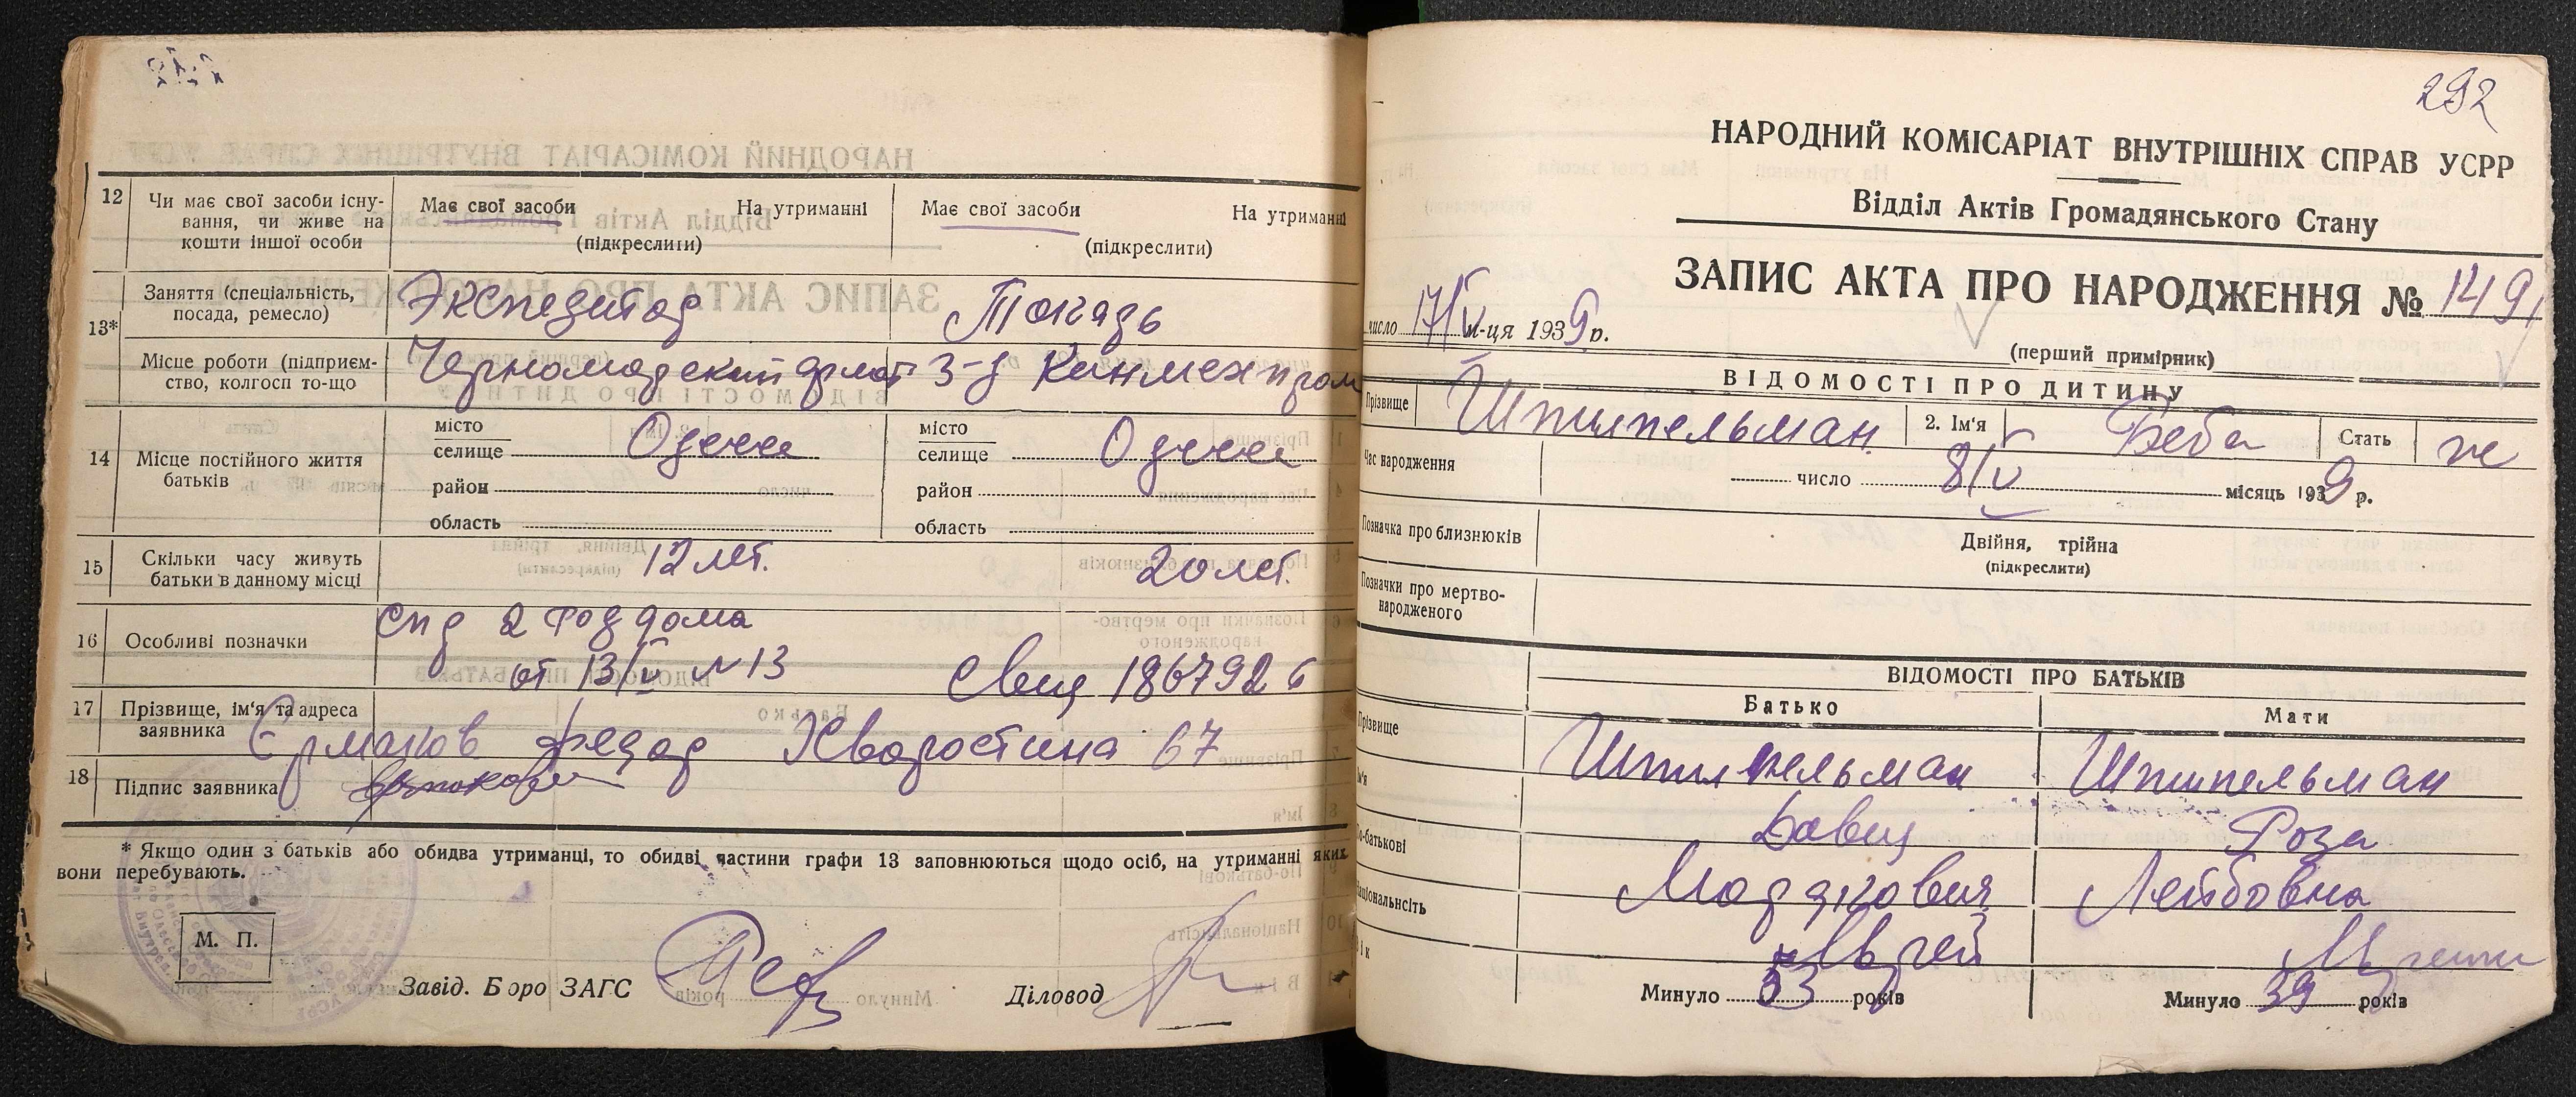 12 Чи має свої засоби існу-
вання, чи живе на
кошти іншої особи
Має свої засоби На утриманні
(підкреслити)
Має свої засоби На утриманні
(підкреслити)
13* Заняття (спеціальність,
посада, ремесло)
Экспедитор
Токарь
Місце роботи (підприєм-
ство, колгосп то-що
Черноморский флот
3-д Кинмехпром
14 Місце постійного життя
батьків
місто
селище Одесса
район
область
місто
селище Одесса
район
область
15 Скільки часу живуть
батьки в данному місці
12 лет.
20 лет.
16 Особливі позначки
Спр 2 Роддома
от 13/V N 13 Свид 186792 б
17 Прізвище, ім'я та адреса
заявника Ермаков Федор Хворостина 67
18 Підпис заявника
* Якщо один з батьків або обидва утриманці, то обидві частини графи 13 заповнюються щодо осіб, на утриманні яких
вони перебувають.
М. П.
Завід. Бюро ЗАГС
Діловод
292
НАРОДНИЙ КОМІСАРІАТ ВНУТРІШНІХ СПРАВ УСРР
Відділ Актів Громадянського Стану
ЗАПИС АКТА ПРО НАРОДЖЕННЯ № 1491
число 17/V м-ця 1939 р.
(перший примірник)
ВІДОМОСТІ ПРО ДИТИНУ
Прізвище Шпилпельман 2. Ім'я Беба Стать ж
Час народження число 8/V місяць 1939 р.
Позначка про близнюків
Двійня, трійна
(підкреслити)
Позначки про мертво-
народженого
ВІДОМОСТІ ПРО БАТЬКІВ
Батько Мати
Прізвище Шпилпельман Шпилпельман
Ім'я Давид Роза
По-батькові Мордкович Лейбовна
Національність Еврей Еврейка
Вік Минуло 53 років Минуло 39 років